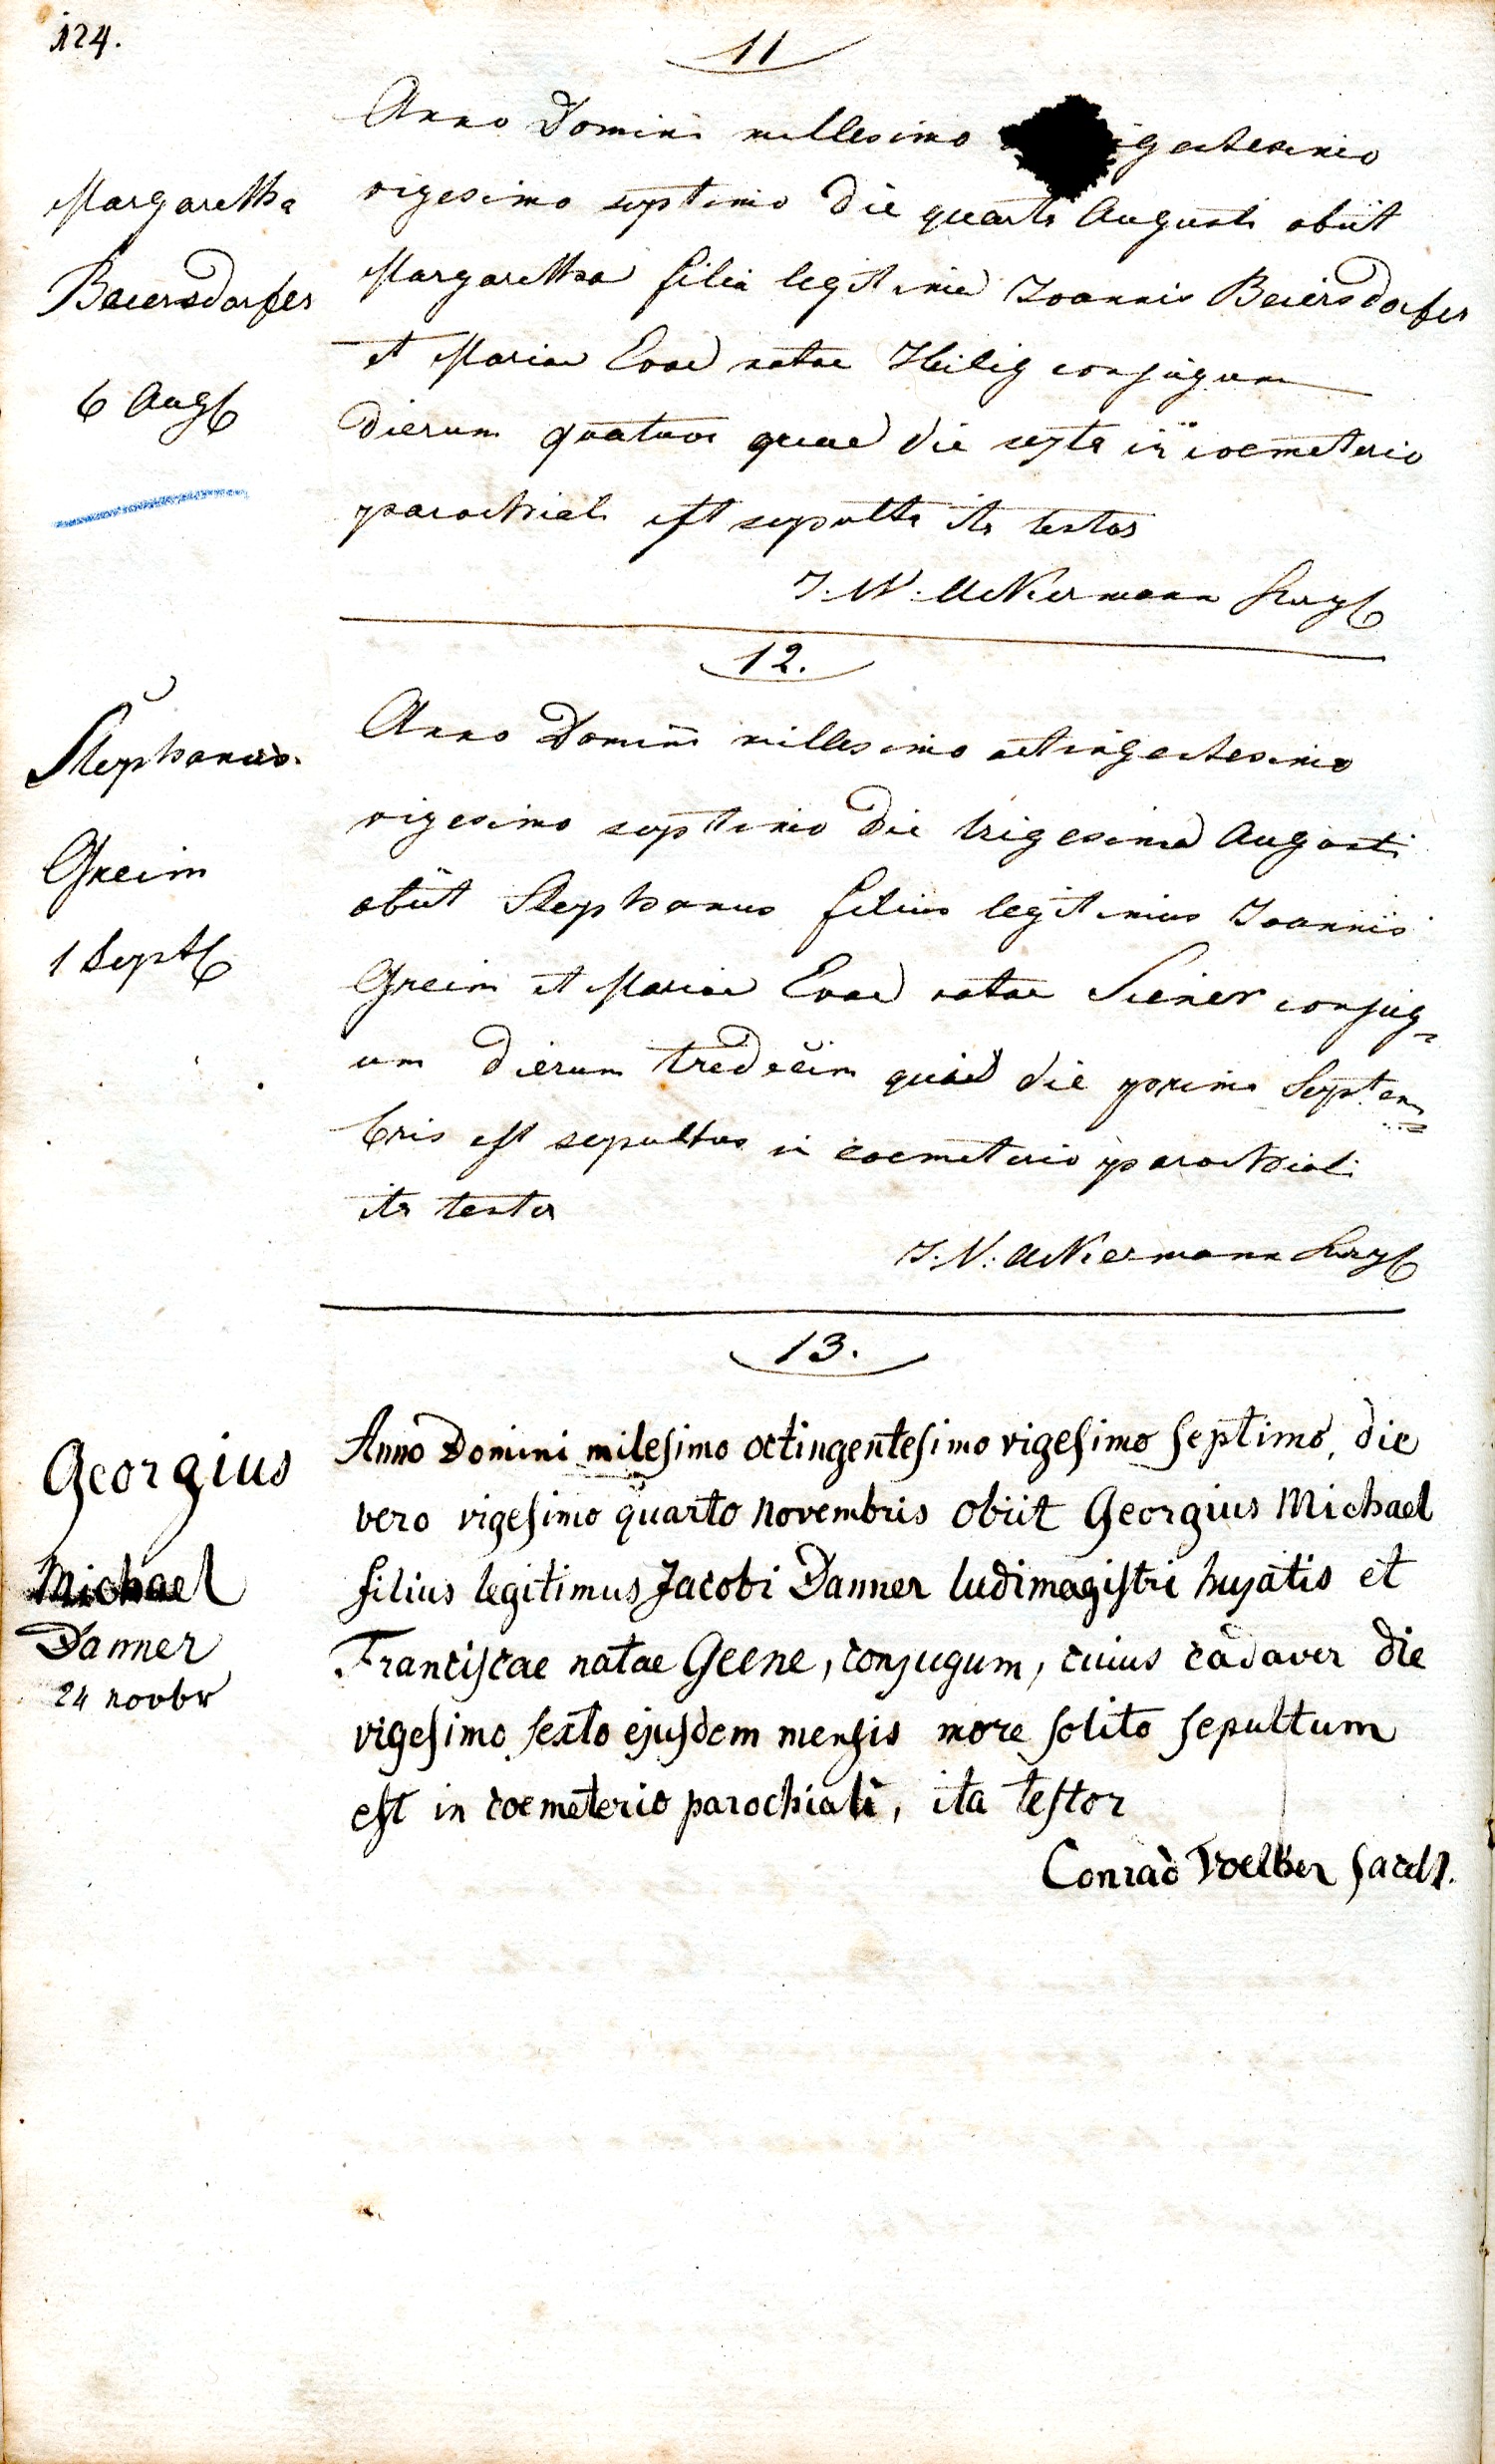 124.
11
Anno Domini millesimo gentesimo
Margaretha
vigesimo septimo die quarta Augusti obiit
Beiersdorfer
Margaretha filia legitima Joannis Beiersdorfer
et Mariae Evae natae Heilig conjugum
6 Aug
dierum quatuor quae die sexta in coemeterio
parochiali est sepulta ita testor
J. N. Ackermann
12.
Anno Domini millesimo octingentesimo
Stephanus.
vigesimo septimo die trigesima Augusti
Greim
obiit Stephanus filius legitimus Joannis
1 Sept
Greim et Mariae Evae natae Siener conjug=
um dierum tredecim qui die prima Septem=
bris est sepultus in coemeterio parochiali
ita testor
J. N. Ackermann
13.
Anno Domini milesimo octingentesimo vigesimo septimo, die
Georgius
vero vigesimo quarto novembris obiit Georgius Michael
Michael
filius legitimus Jacobi Danner ludimagistri hujatis et
Danner
Franciscae natae Geene, conjugum, cuius cadaver die
24 novbr
vigesimo sexto ejusdem mensis more solito sepultum
est in coemeterio parochiali, ita testor
Conrad Voelker sacell.